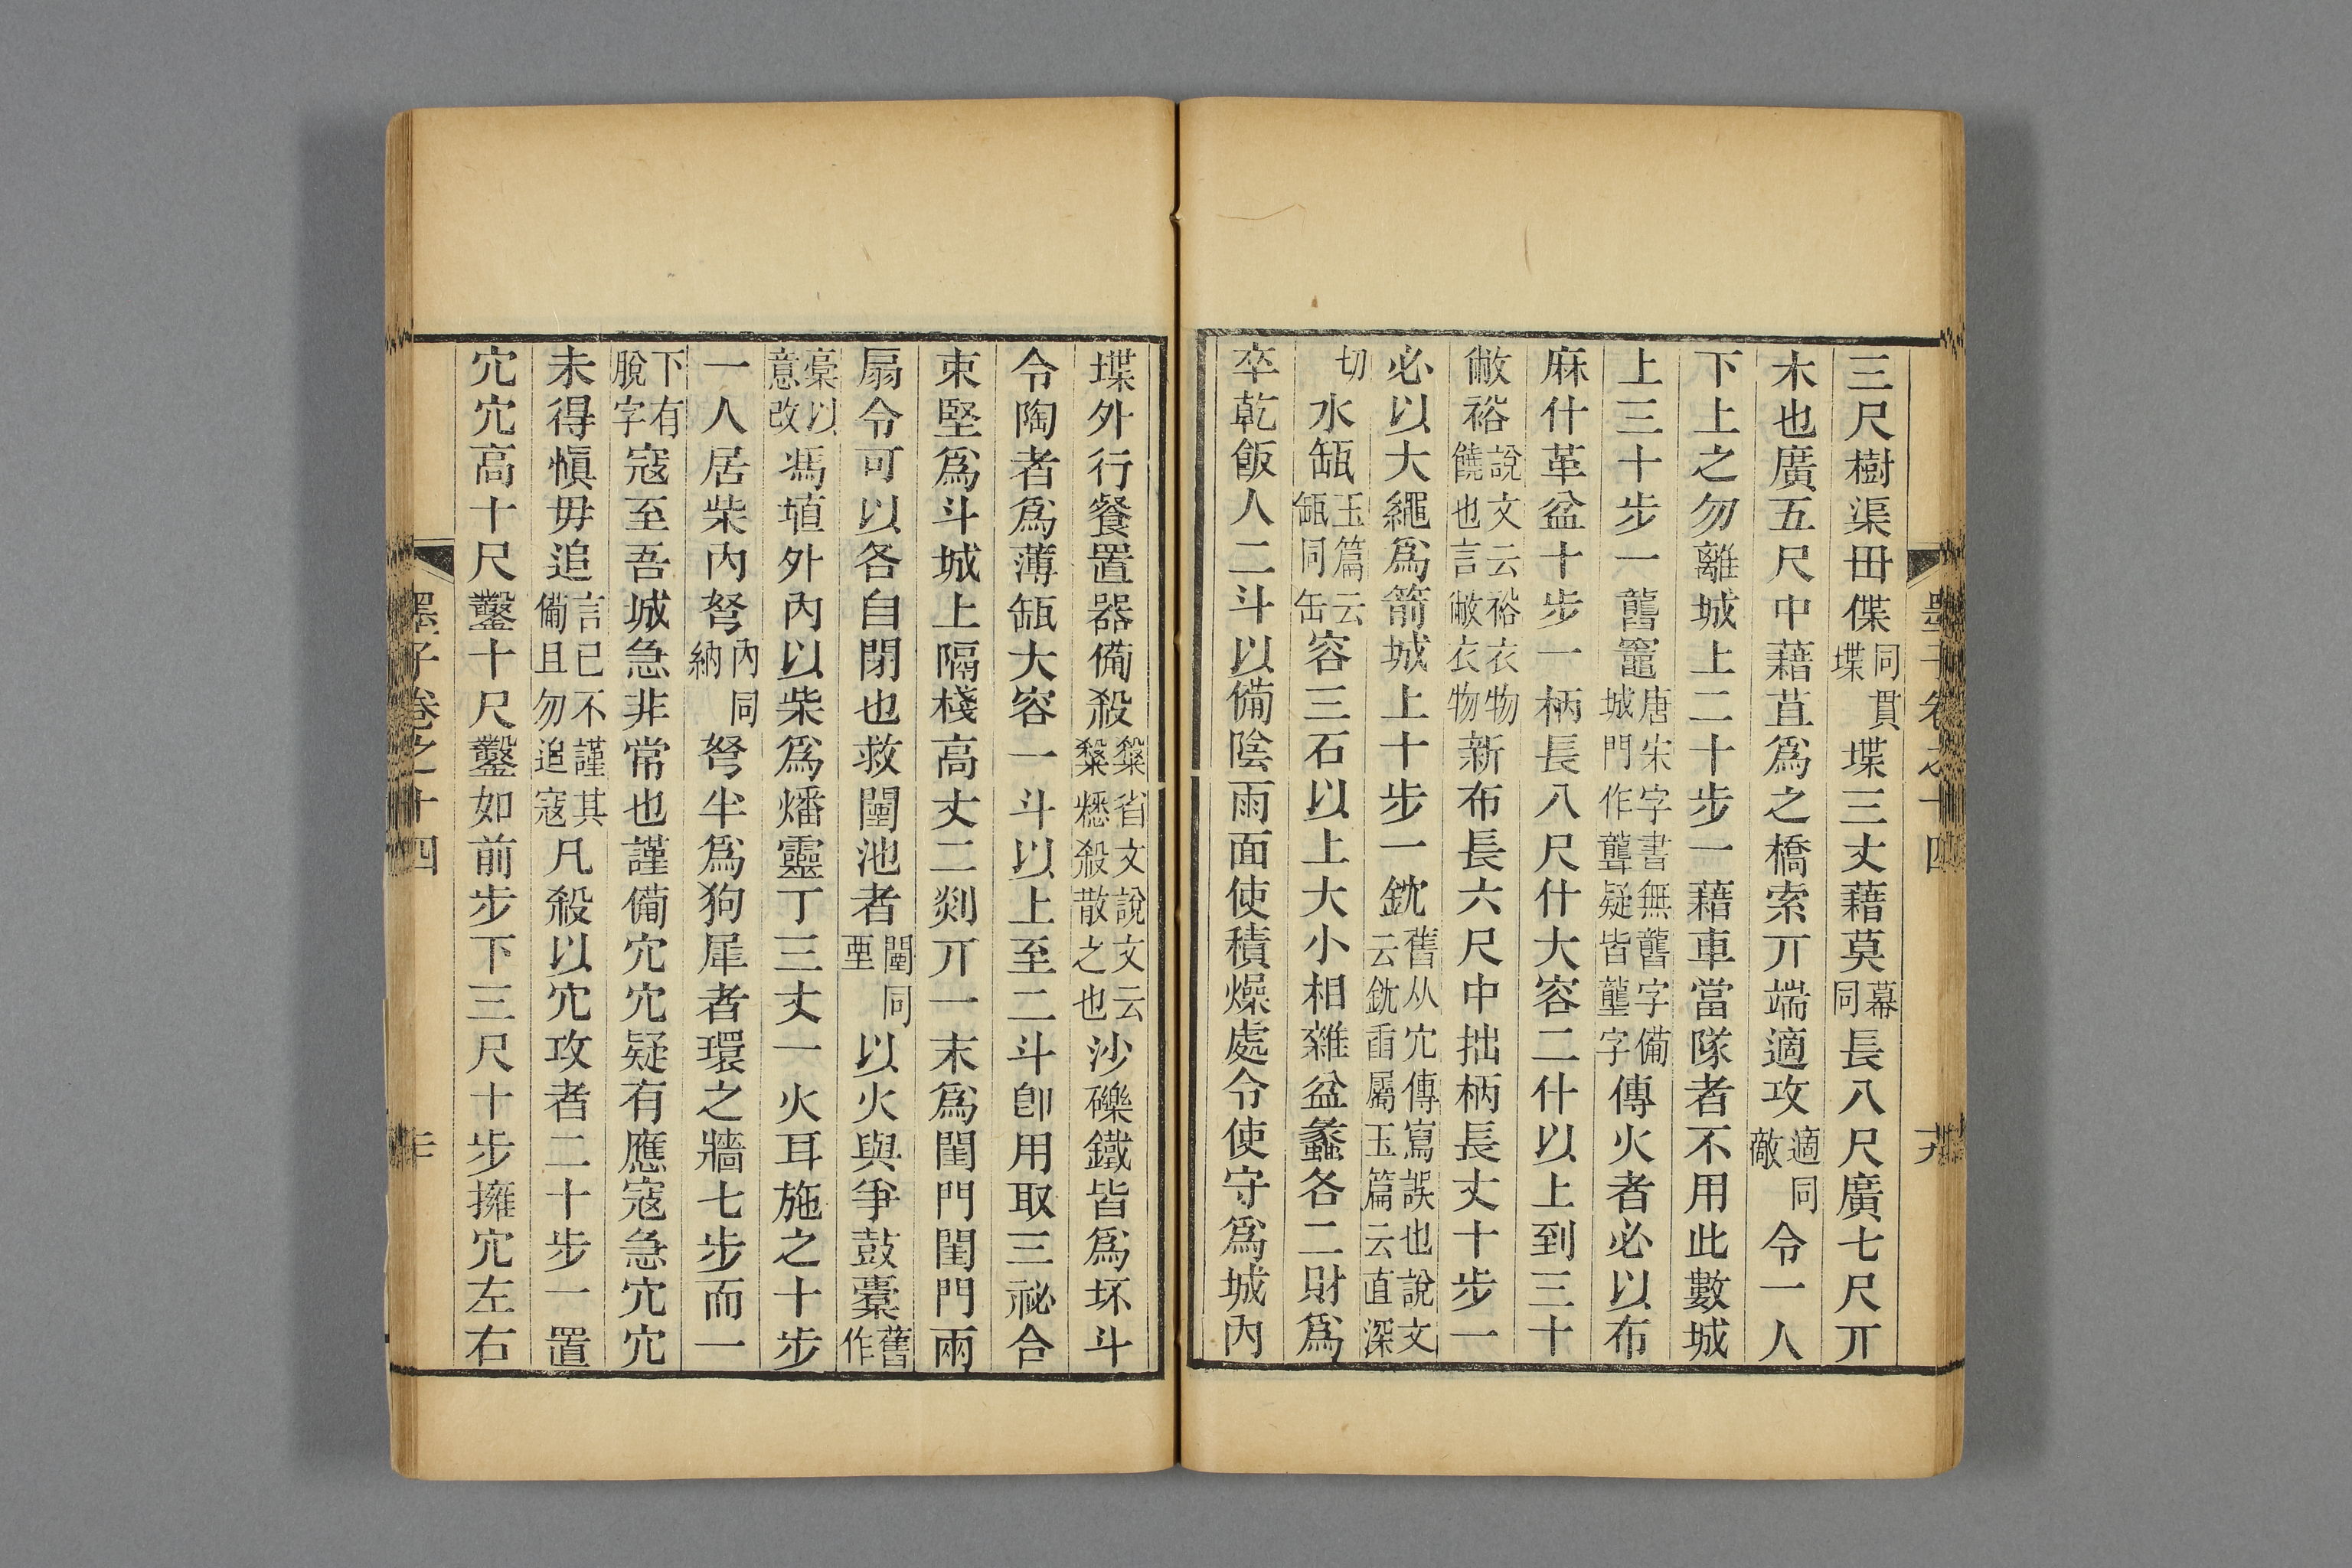 三尺樹渠毌偞堞同貫堞三丈藉莫幕同長八尺廣七尺丌
木也廣五尺中藉苴爲之橋索丌端適攻適同敵令一人
下上之勿離城上二十步一藉車當隊者不用此數城
上三十步一礱竈唐宋字書無礱字備城門作聾疑皆壟字傳火者必以布
麻什革盆十步一柄長八尺什大容二什以上到三十
敝裕說文云裕衣物饒也言敝衣物新布長六尺中拙柄長丈十步一
必以大繩爲箭城上十步一鈂舊从冘傳寫誤也說文云鈂臿屬玉篇云直深
切水瓵玉篇云瓵同缶容三石以上大小相雜盆蠡各二財爲
卒乾飯人二斗以備陰雨面使積燥處令使守爲城內
堞外行餐置器備殺糳省文說文云糳䊝殺散之也沙礫鐵皆爲坏斗
令陶者爲薄瓵大容一斗以上至二斗卽用取三祕合
束堅爲斗城上隔棧高丈二剡丌一末爲閨門閨門兩
扇令可以各自閉也救闉池者闉同垔以火與爭鼓橐舊作
橐以意改馮埴外內以柴爲燔靈丁三丈一火耳施之十步
一人居柴內弩內同納弩半爲狗犀者環之牆七步而一
下有脫字寇至吾城急非常也謹備穴穴疑有應寇急穴穴
未得愼毋追言已不謹其備且勿追寇凡殺以穴攻者二十步一置
穴穴高十尺鑿十尺鑿如前步下三尺十步擁穴左右
墨子卷之十四